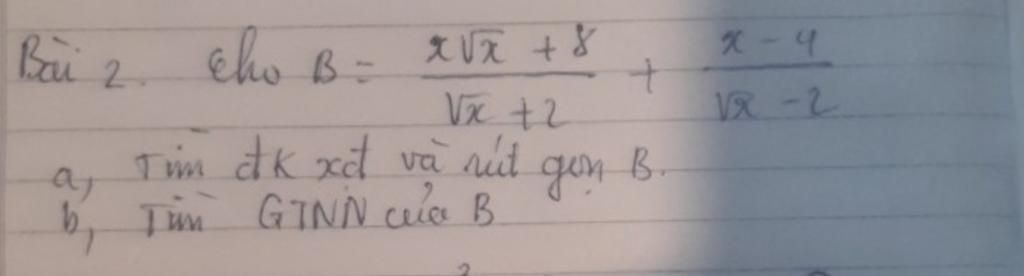 Bài 2. Cho B = \frac{x\sqrt{x} + 8}{\sqrt{x} + 2} + \frac{x - 4}{\sqrt{x} - 2}
a, Tìm đk xđ và rút gọn B.
b, Tìm GTNN của B